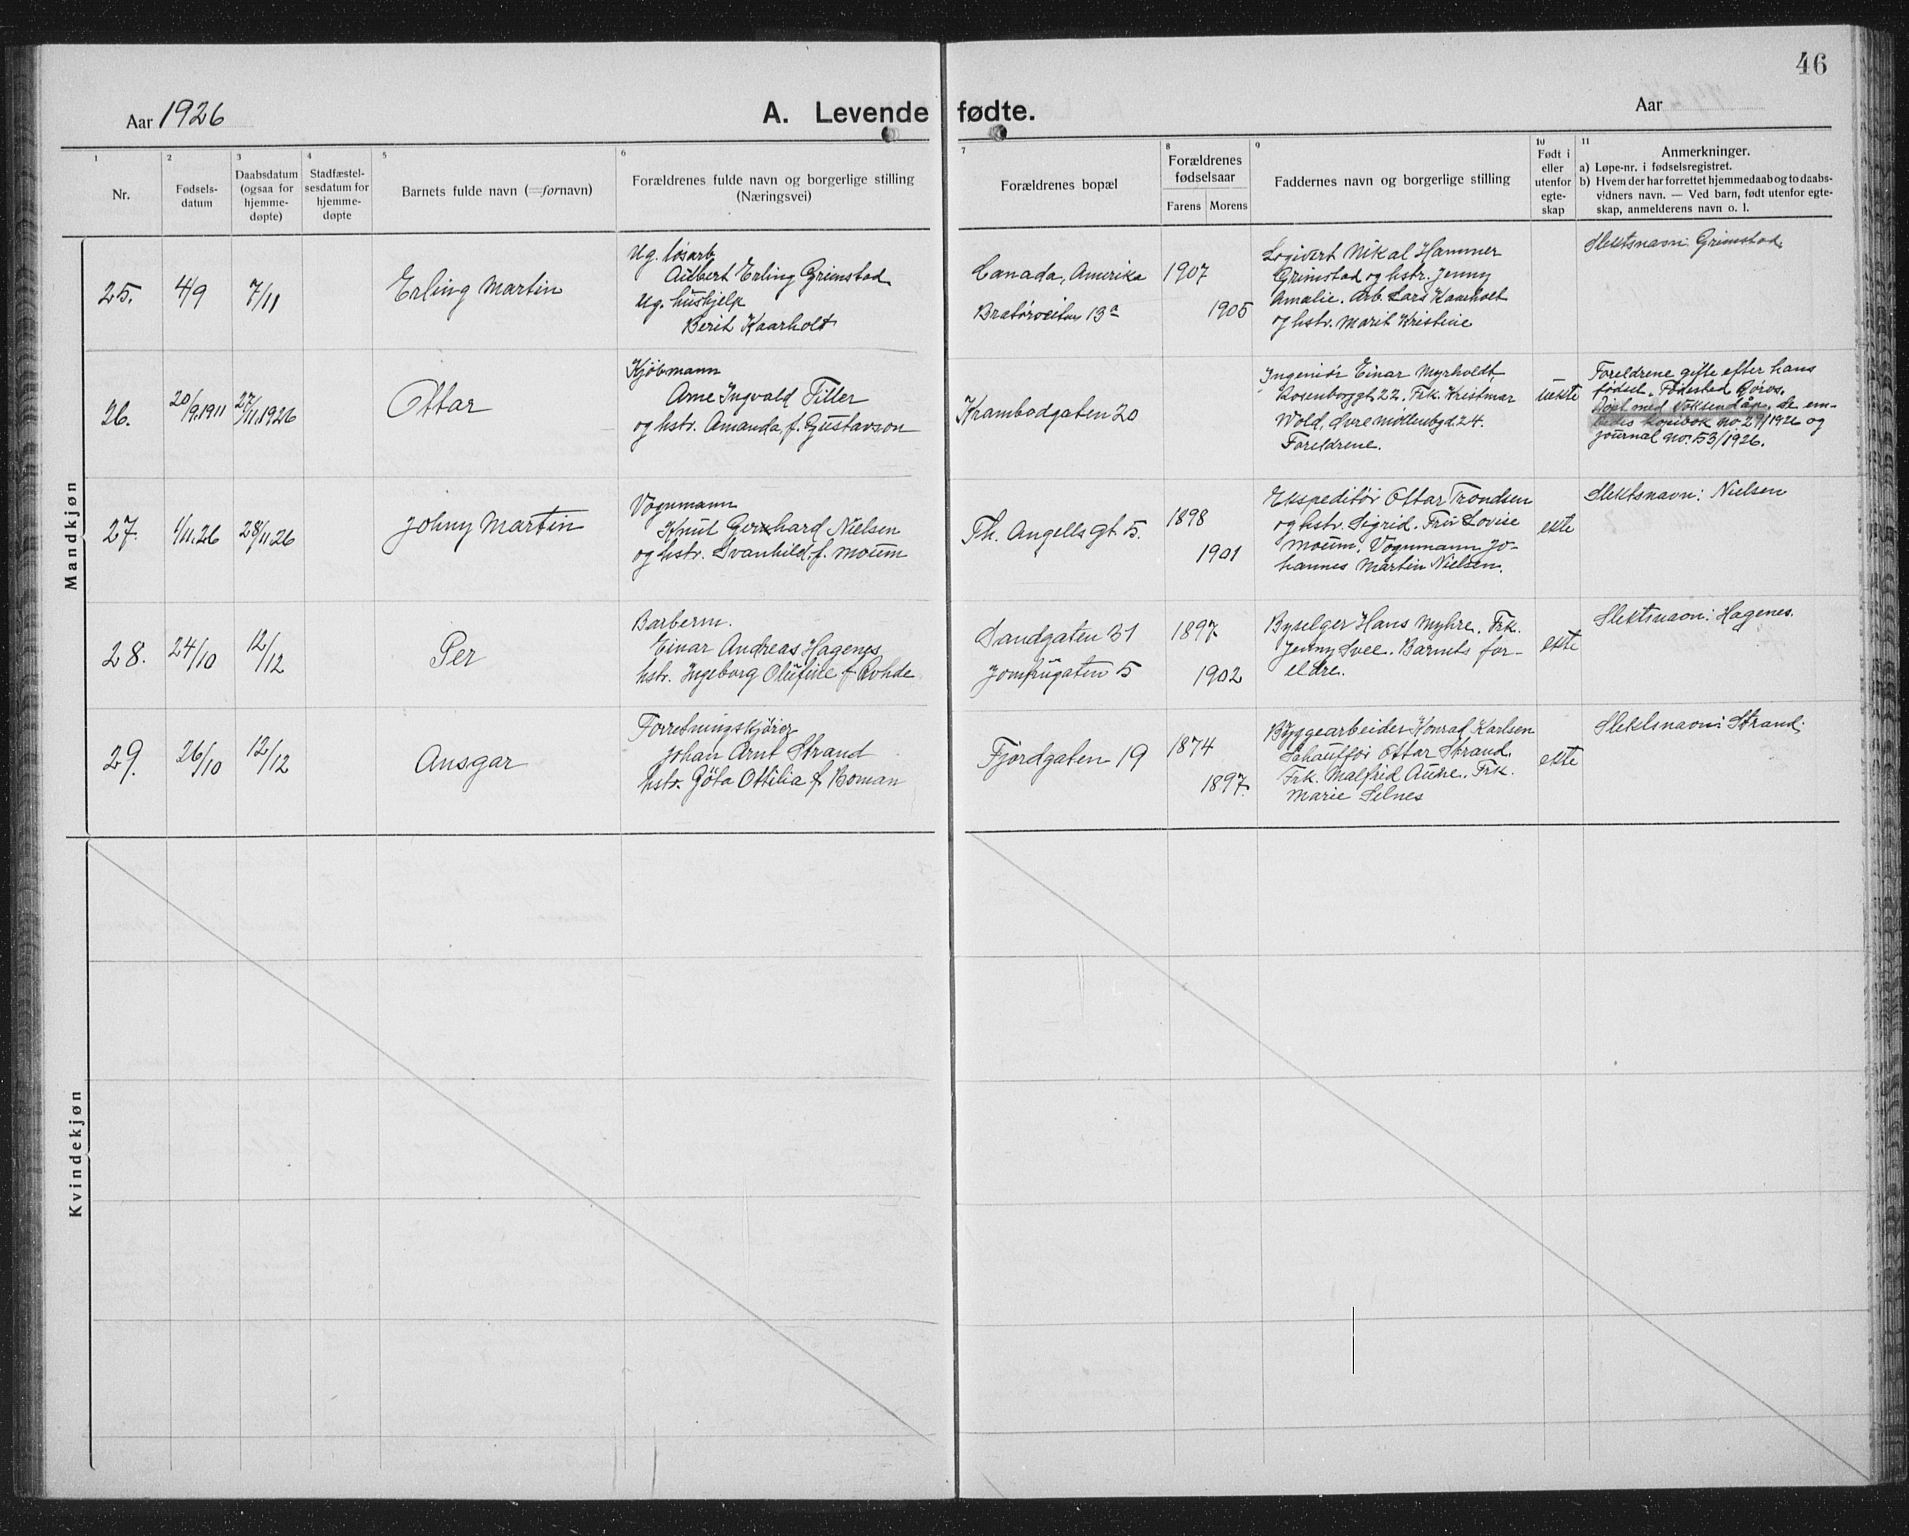 46
Aar 1926
A. Levende fødte.
Aar
1 2 3 4 5 6 7 8 9 10 11
Nr.
Fødsels-
datum
Daabsdatum
(ogsaa for
hjemme-
døpte)
Stadfæstel-
sesdatum for
hjemme-
døpte
Barnets fulde navn (=fornavn)
Forældrenes fulde navn og borgerlige stilling
(Næringsvei)
Forældrenes bopæl
Forældrenes
fødselsaar
Farens Morens
Faddernes navn og borgerlige stilling
Født i
eller
utenfor
egte-
skap
Anmerkninger.
a) Løpe-nr. i fødselsregistret.
b) Hvem der har forrettet hjemmedaab og to daabs-
vidners navn. — Ved barn, født utenfor egte-
skap, anmelderens navn o. l.
Mandkjøn
25. 4/9 7/11 Erling Martin
Ug. løsarb.
Erling Grimstad
Ug. hushjelp
Berit Kaarholt
Canada, Amerika
Bratørveiten 13a
1907
1905
Nikal Hammer
Grimstad og hstr. Jenny
Amalie. Arb. Lars Kaarholt
og hstr. Marit Kristine
Slektsnavn: Grimstad
26. 20/9.1911 27/11.1926 Ottar
Kjøbmann
Arne Ingvald Tiller
og hstr. Amanda f. Gustavson
Krambodgaten 20
Ingeniør Einar Myrholdt,
Rosenborggt 22. Frk. Kristmar
Wold, Øvre Møllenbgd. 24.
Foreldrene.
uekte
Foreldrene gifte efter hans
fødsel. Fødested Røros.
Døpt med voksendåp. Se em-
bedets kopibok no. 29/1926 og
journal no. 53/1926.
27. 1/11.26 28/11 26 Johny Martin
Vognmann
Knut Gerhard Nielsen
og hstr. Svanhild f. Moum
Th. Angells gt. 5.
1898
1901
Ekspeditør Ottar Trondsen
og hstr. Sigrid. Fru Lovise
Moum, Vognmann Jo-
hannes Martin Nielsen.
ekte
Slektsnavn: Nielsen
28. 24/10 12/12 Per
Barberm.
Einar Andreas Hagenes
hstr. Ingeborg Olufine f. Rohde
Sandgaten 31
Jomfrugaten 5
1897
1902
Byselger Hans Myhre. Frk.
Jenny Svee. Barnets for-
eldre.
ekte
Slektsnavn: Hagenes.
29. 26/10 12/12 Ansgar
Forretningskjører
Johan Arnt Strand
hstr. Göta Ottilia f. Boman
Fjordgaten 19
1874
1897.
Byggearbeider Konrad Karlsen
Schauffør Ottar Strand.
Frk. Malfrid Aune. Frk.
Marie Selnes
ekte
Slektsnavn: Strand.
Kvindekjøn